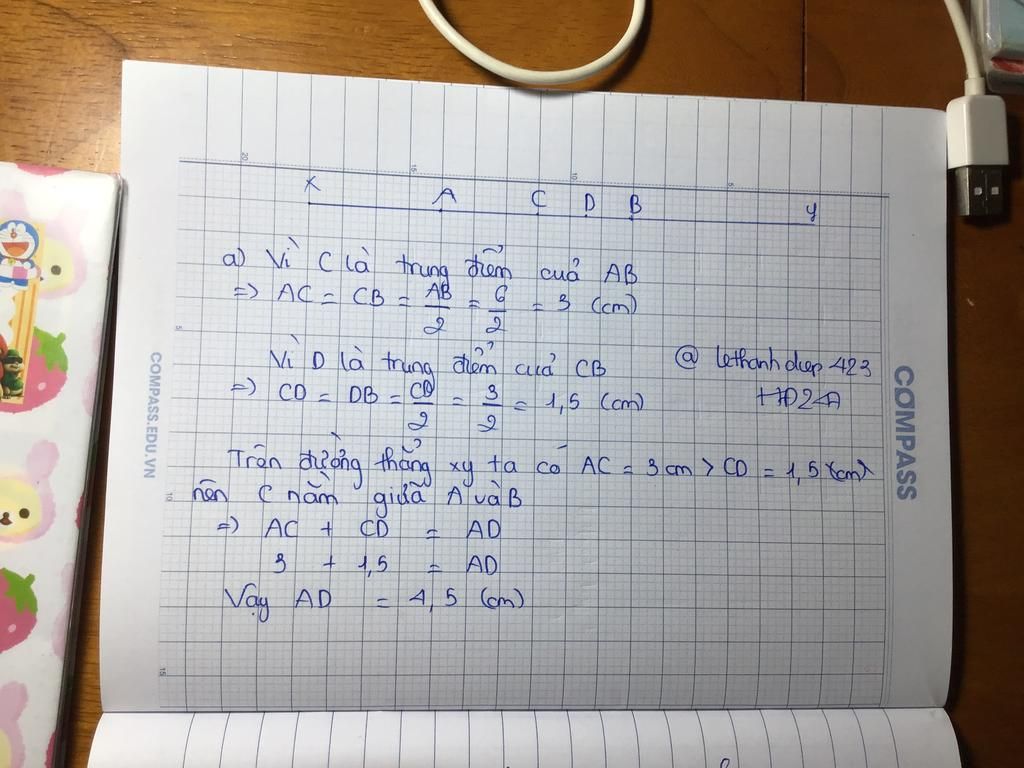 20 15 10 5
x A C D B y
a) Vì C là trung điểm cuả AB
=> AC = CB = AB/2 = 6/2 = 3 (cm)
Vì D là trung điểm cuả CB
@ lethanhdiep 423
=> CD = DB = CD/2 = 3/2 = 1,5 (cm)
HD2A
Trên đường thẳng xy ta có AC = 3cm > CD = 1,5 (cm)
nên C nằm giữa A và B
=> AC + CD = AD
3 + 1,5 = AD
Vậy AD = 4,5 (cm)
5
10
15
COMPASS.EDU.VN
COMPASS